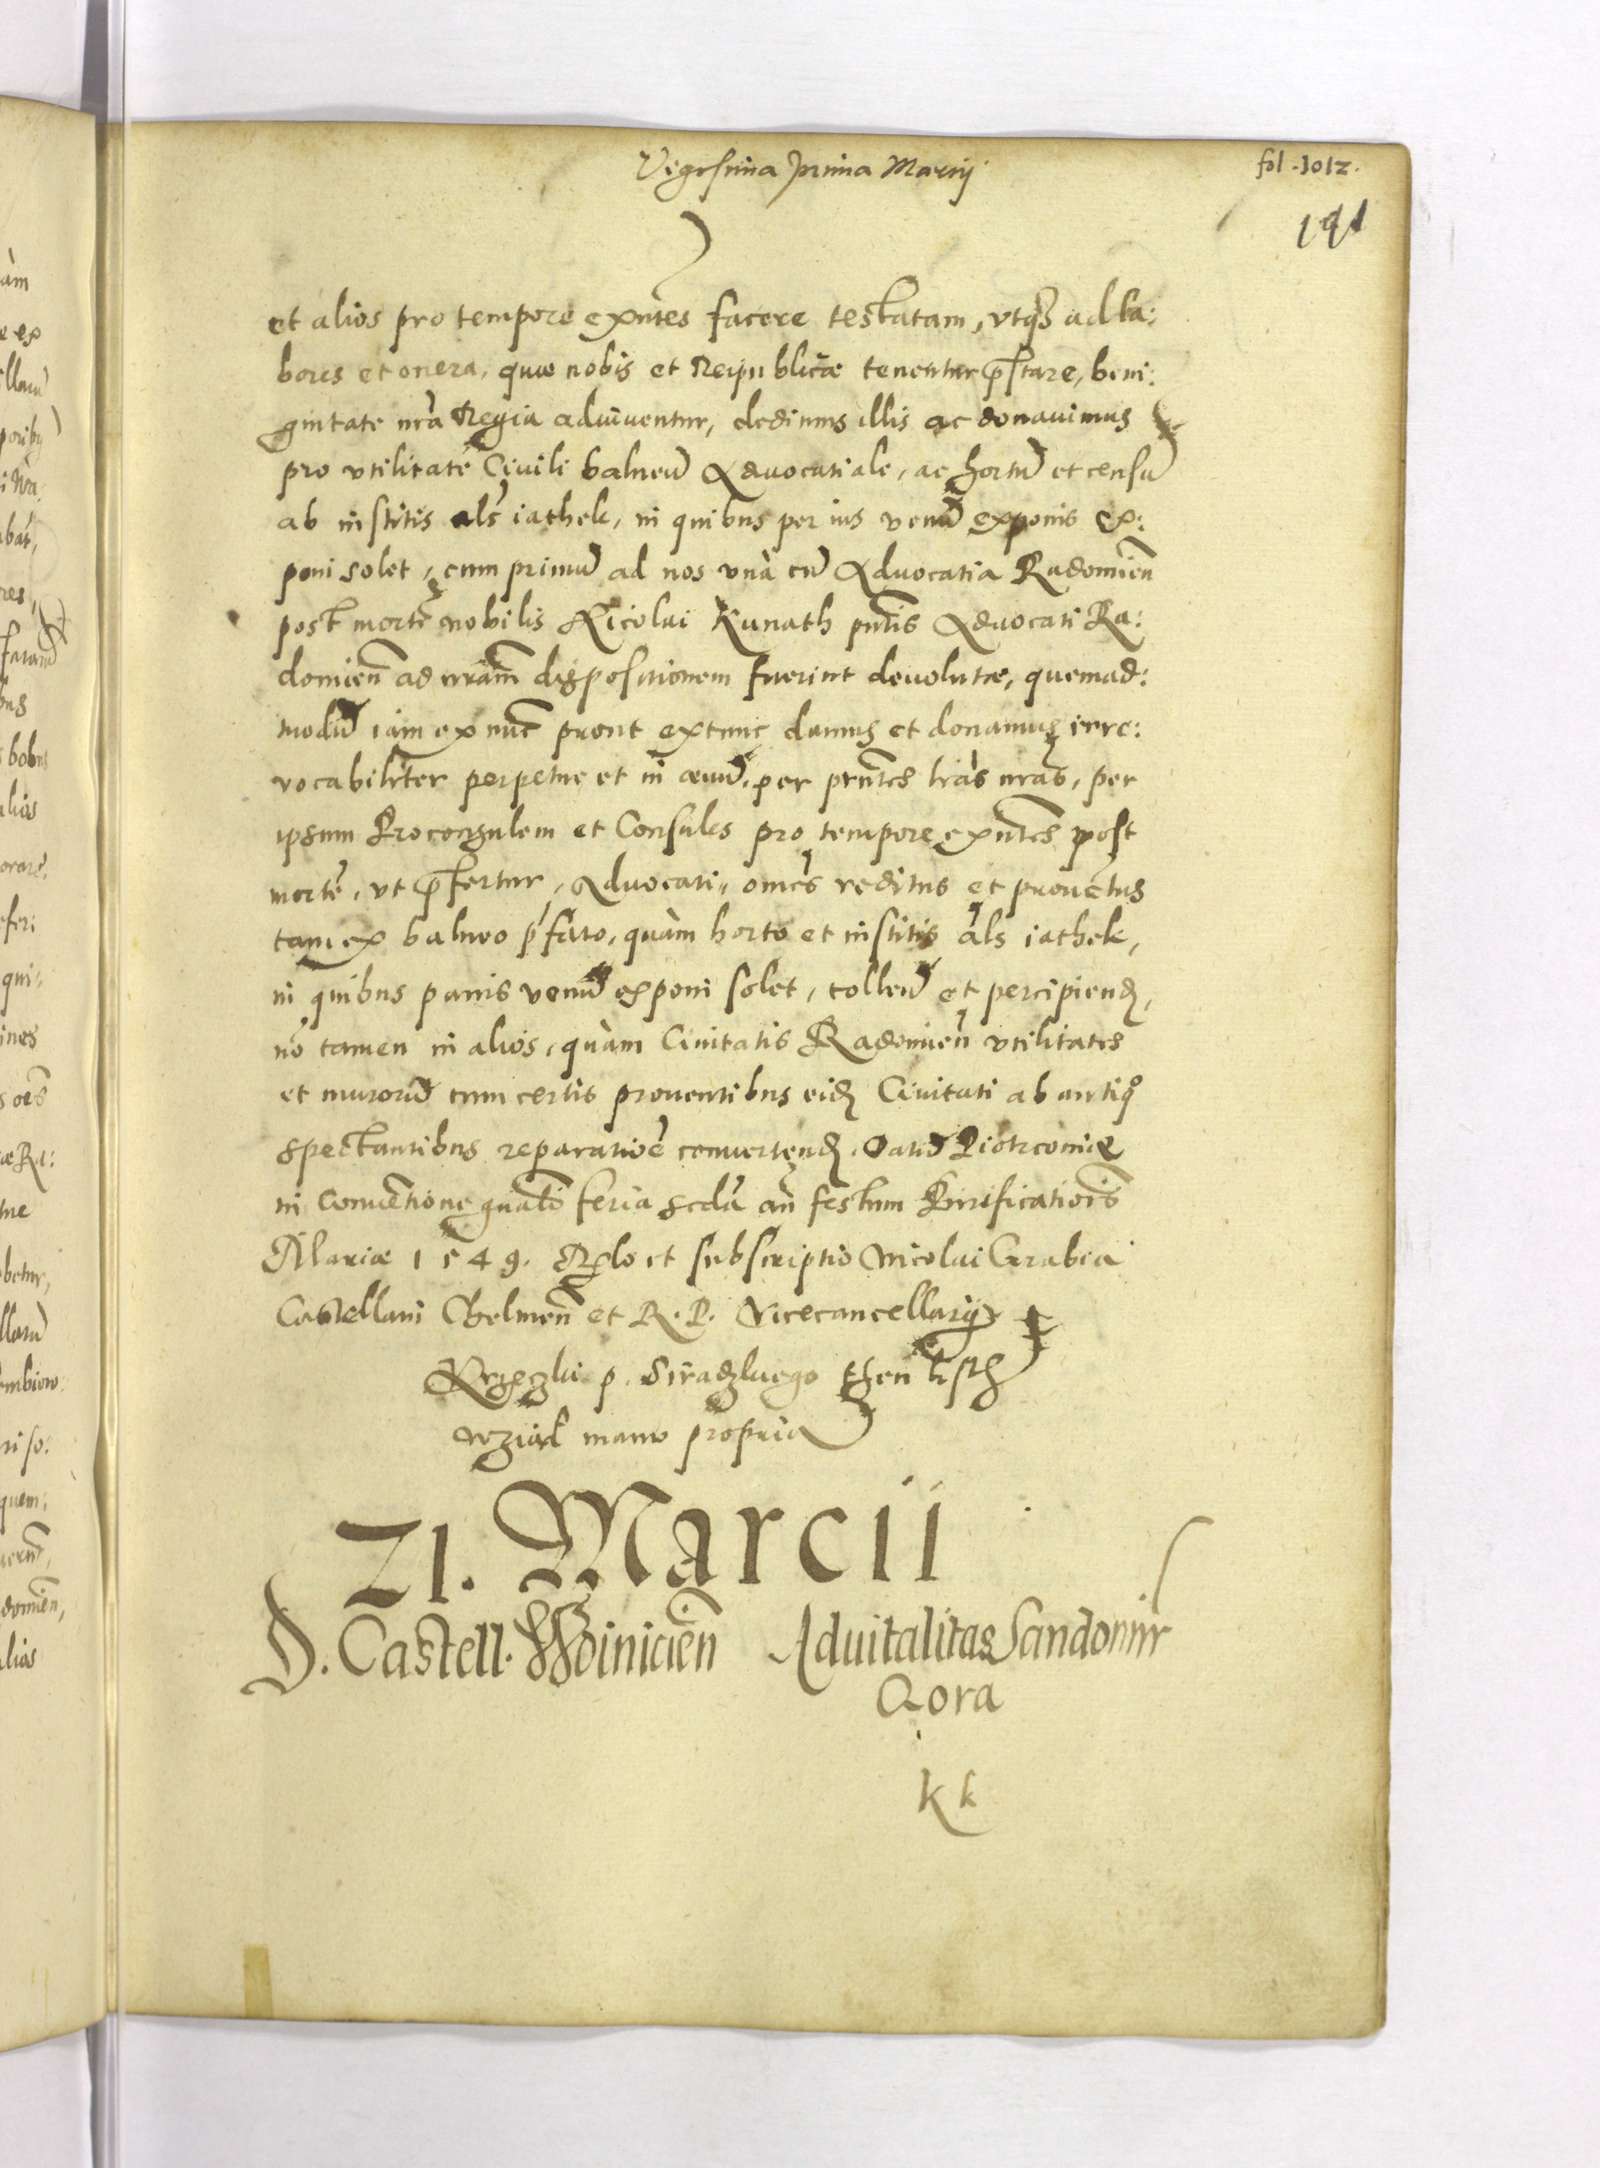 Vigesima prima Marcij
fol. 1012.
191
et alios pro tempore exntes facere testatam, vtq3 ad la:
bores et onera, quæ nobis et Reipublicæ tenentur pstare, beni:
gnitate nra Regia adiuventur, dedimus illis ac donauimus
pro vtilitate Ciuili balneu Aduocatiale, ac hortu et censu
ab institis als iathek, in quibus per ius venu exponis ex:
poni solet, cum primu ad nos vnà cu Aduocatia Radomien
post morte nobilis Nicolai Kunath pntis Aduocati Ra:
domien ad nram dispositionem fuerint deuolutæ, quemad:
modu iam ex nuc prout extunc damus et donamus irre:
vocabiliter perpetue et in æuu. per prntes lras nras, per
ipsum Proconsulem et Consules pro tempore exntes post
morte, vt pfertur, Aduocati, omes reditus et prouetus
tam ex balneo pfato, quàm horto et institis als iathek,
in quibus panis venu exponi solet, tollend et percipiend,
no tamen in alios, quàm Ciuitatis Radomien vtilitates
et muroru cum certis prouentibus eid Ciuitati ab antiqo
spectantibus reparatioe conuertend. Datu Piotrcouiæ
in Conuetione gnali feria scda an festum Purificatiois
Mariæ 1549. Rlo et subscriptio Nicolai Grabia
Castellani Chelmen et R. P. Vicecancellarij
p. Siradzkiego then list
wziąl manu propria
21. Marcii
D. Castell. Woinicien Aduitalitas Sandomir
Qora
K k